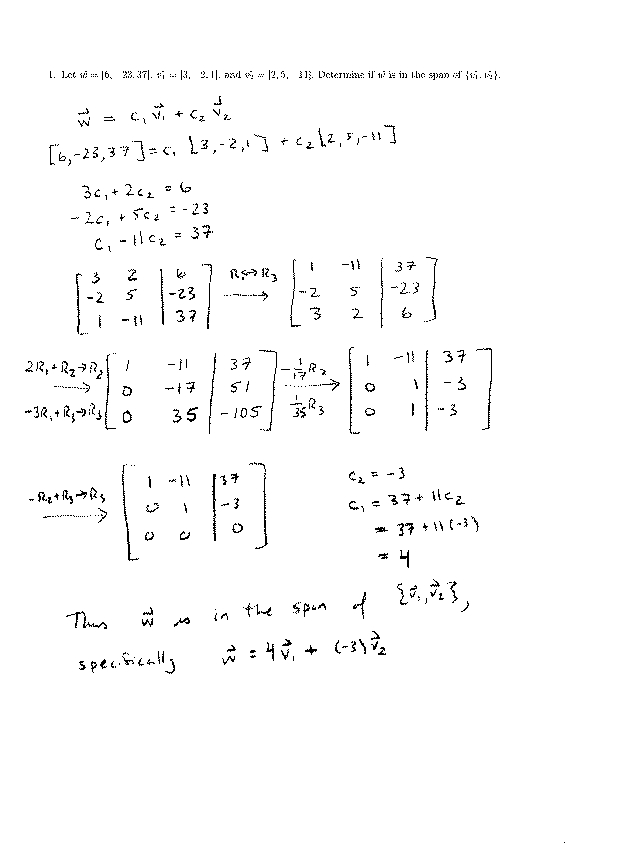 1. Let w⃗ = [6, −23, 37], v⃗₁ = [3, −2, 1], and v⃗₂ = [2, 5, −11]. Determine if w⃗ is in the span of {v⃗₁, v⃗₂}.
w⃗ = c₁ v⃗₁ + c₂ v⃗₂
[6, -23, 37] = c₁ [3, -2, 1] + c₂ [2, 5, -11]
3c₁ + 2c₂ = 6
-2c₁ + 5c₂ = -23
c₁ - 11c₂ = 37
[ 3 2 | 6 ] R₁↔R₃ [ 1 -11 | 37 ]
[ -2 5 | -23 ] → [ -2 5 | -23 ]
[ 1 -11 | 37 ] [ 3 2 | 6 ]
2R₁+R₂→R₂ [ 1 -11 | 37 ] -1/17 R₂ [ 1 -11 | 37 ]
→ [ 0 -17 | 51 ] → [ 0 1 | -3 ]
-3R₁+R₃→R₃ [ 0 35 | -105 ] 1/35 R₃ [ 0 1 | -3 ]
-R₂+R₃→R₃ [ 1 -11 | 37 ]
→ [ 0 1 | -3 ]
[ 0 0 | 0 ]
c₂ = -3
c₁ = 37 + 11c₂
= 37 + 11(-3)
= 4
Thus w⃗ is in the span of {v⃗₁, v⃗₂},
specifically w⃗ = 4v⃗₁ + (-3)v⃗₂